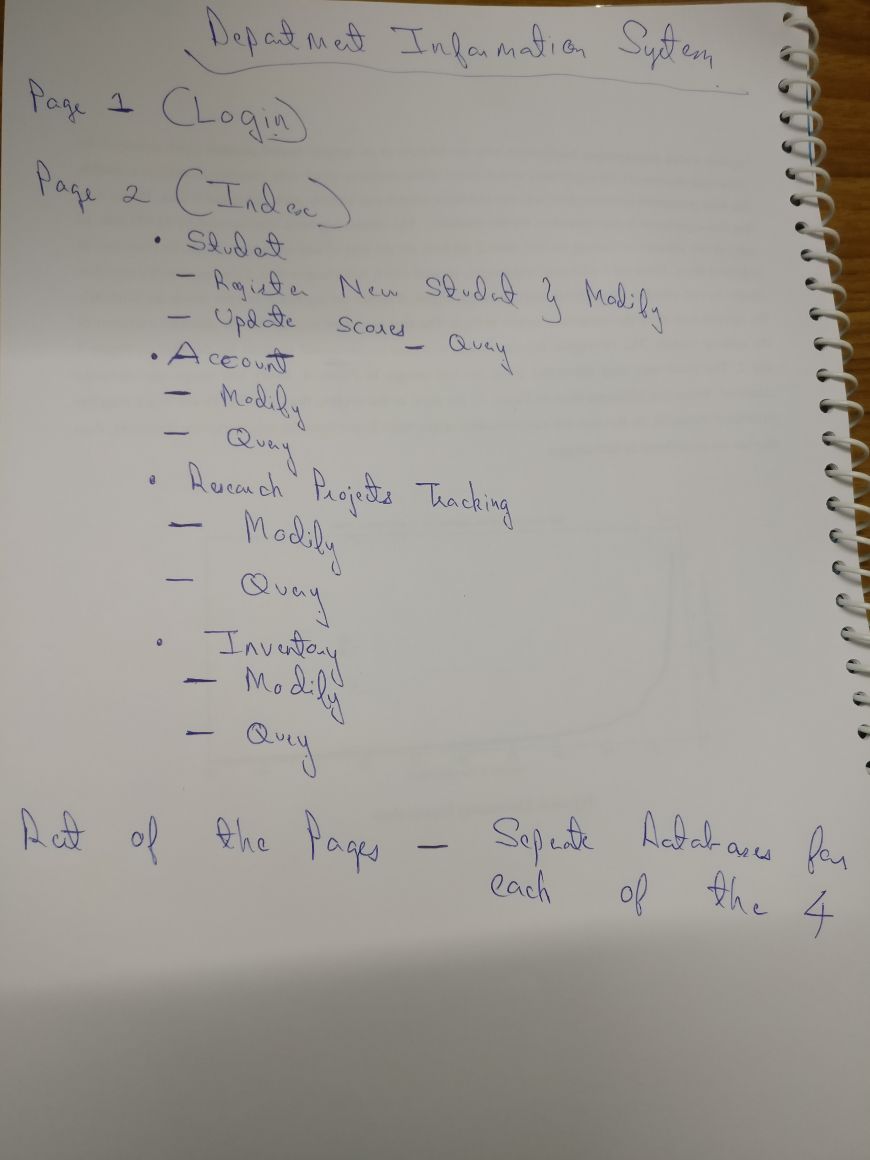 Department Information System
Page 1 (Login)
Page 2 (Index)
• Student
- Register New Student & Modify
- Update scores - Query
• Account
- Modify
- Query
• Research Projects Tracking
- Modify
- Query
• Inventory
- Modify
- Query
Rest of the Pages - Seperate Databases for
each of the 4